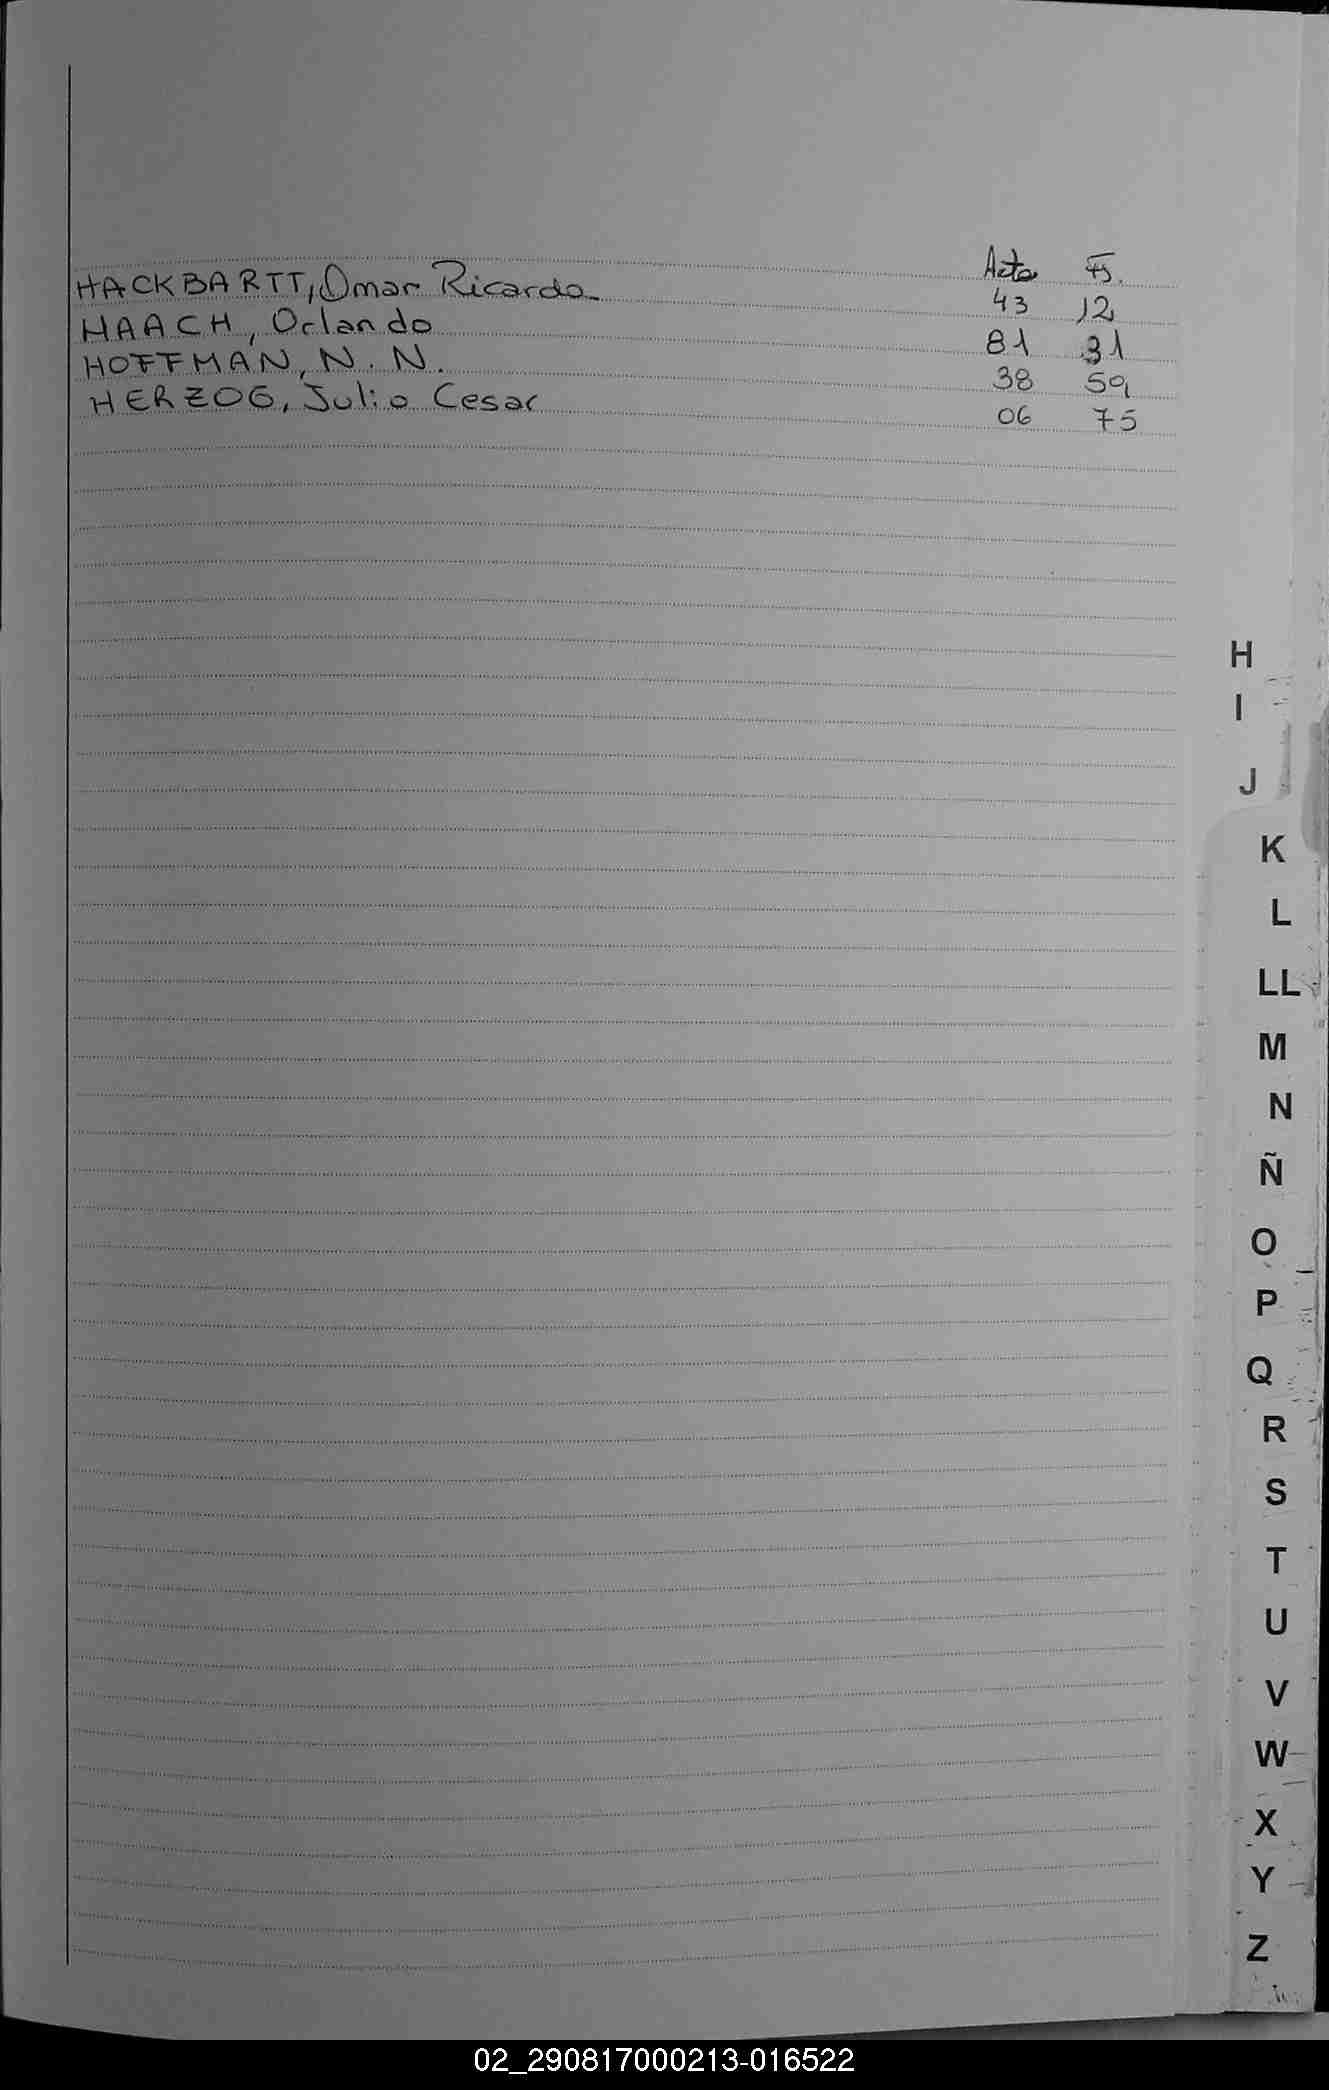 Acta Fs.
HACKBARTT, Omar Ricardo 43 12
HAACH, Orlando 81 31
HOFFMAN, N. N. 38 59
HERZOG, Julio Cesar 06 75
H
I
J
K
L
LL
M
N
Ñ
O
P
Q
R
S
T
U
V
W
X
Y
Z
02_290817000213-016522